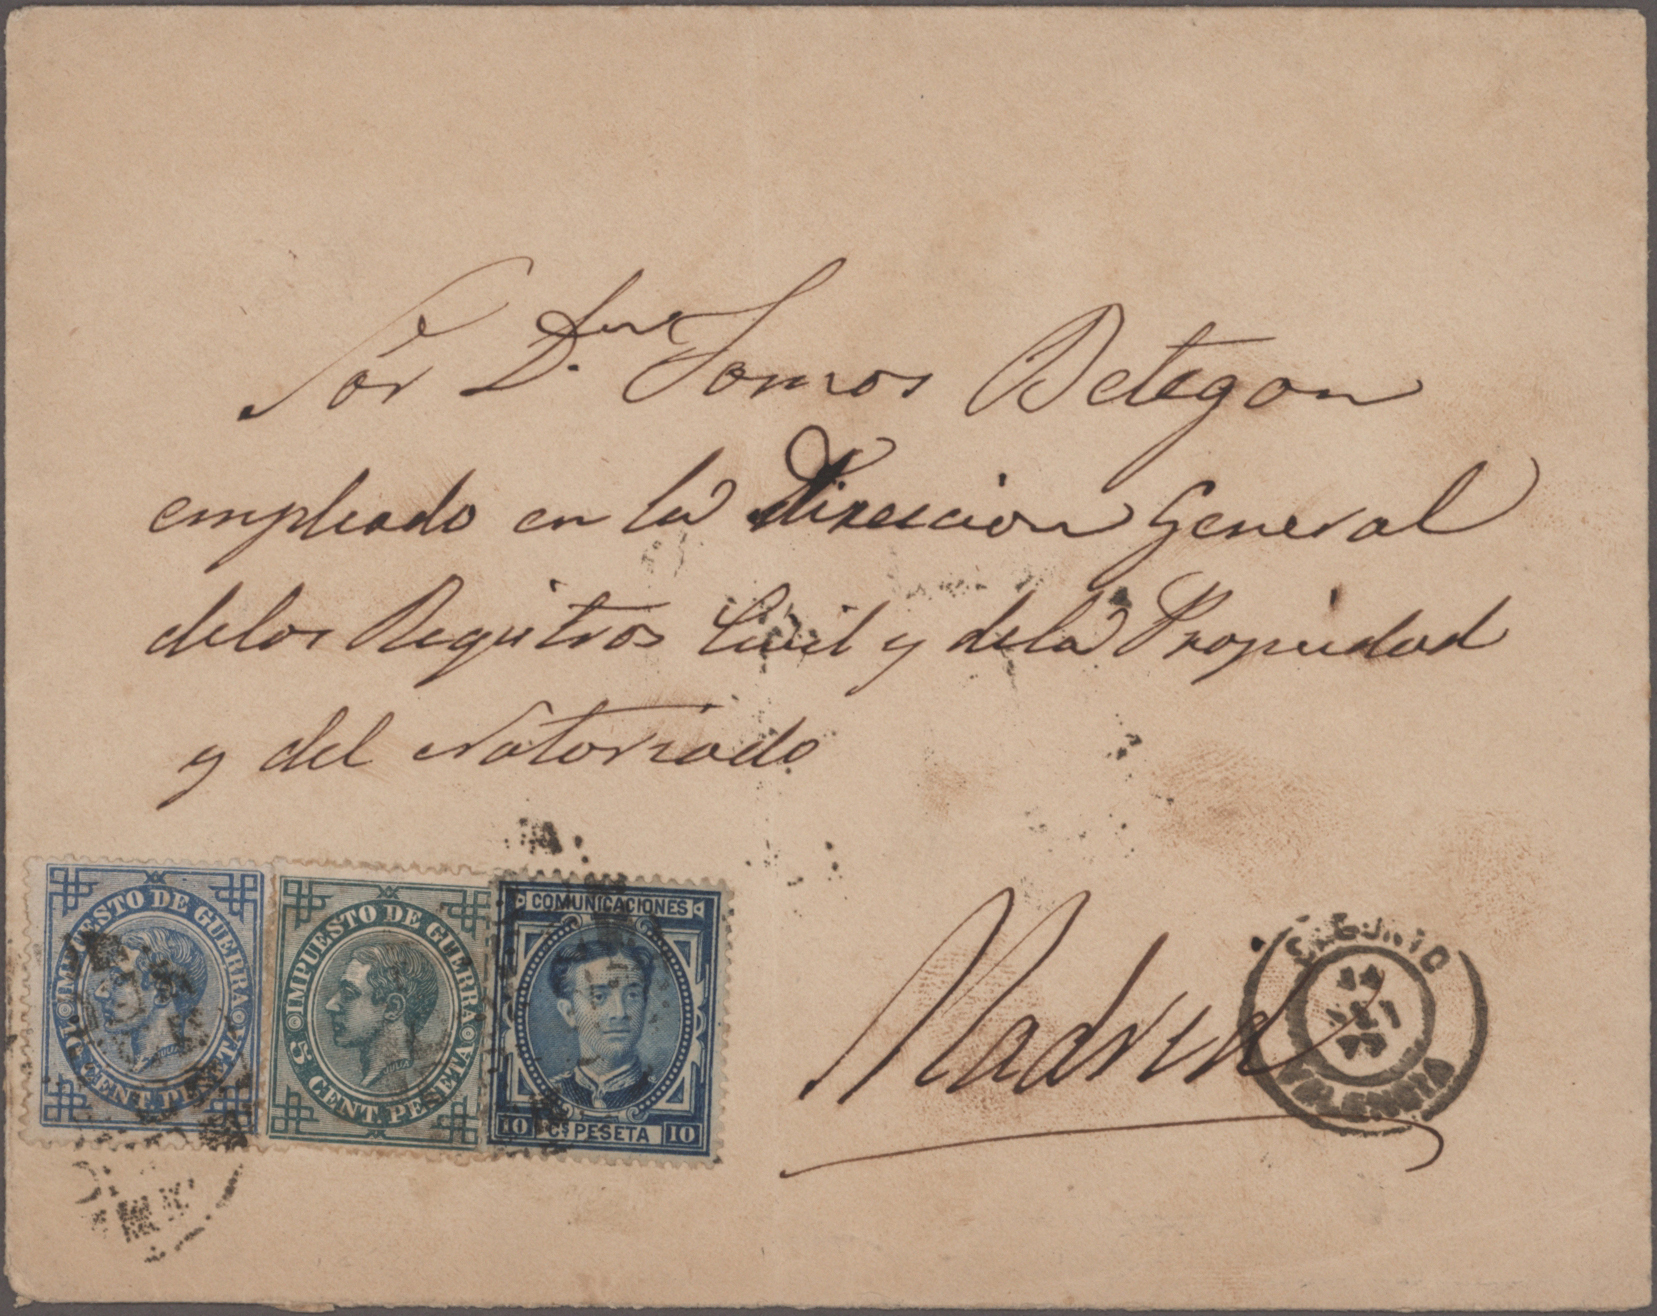 Sor Dn Tomos Betegon
empleado en la Direccion General
de los Registros Civil y de la Propiedad
y del Notoriado
Madrid
SAGUNTO
VALENCIA
IMPUESTO DE GUERRA
CENT. PESETA
IMPUESTO DE GUERRA
5 CENT. PESETA
COMUNICACIONES
10 Cs PESETA 10